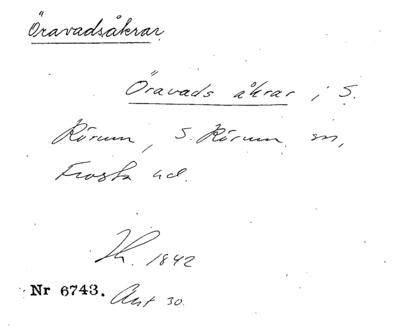 Öravadsåkrar
Öravads åkrar i S.
Rörum, S. Rörum sn,
Frosta hd.
Th. 1842
Nr 6743. Avst 30.